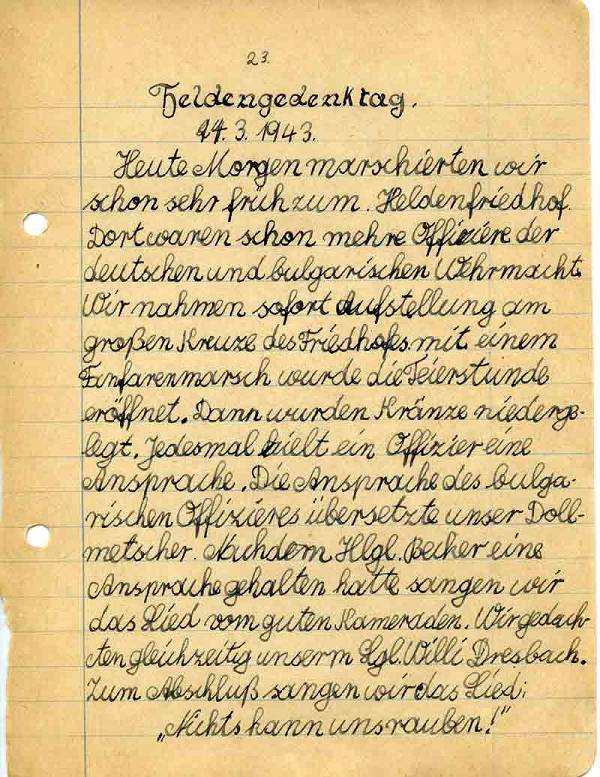 23.
Heldengedenktag.
24.3.1943.
Heute Morgen marschierten wir
schon sehr früh zum Heldenfriedhof.
Dort waren schon mehre Offiziere der
deutschen und bulgarischen Wehrmacht.
Wir nahmen sofort Aufstellung am
großen Kreuze des Friedhofes. mit einem
Fanfarenmarsch wurde die Feierstunde
eröffnet. Dann wurden Kränze niederge-
legt. Jedesmal hielt ein Offizier eine
Ansprache. Die Ansprache des bulga-
rischen Offizieres übersetzte unser Doll-
metscher. Nachdem Hlgl. Becker eine
Ansprache gehalten hatte sangen wir
das Lied vom guten Kameradden. Wir gedach-
ten gleichzeitig unserm Lgl. Willi Dresbach.
Zum Abschluß sangen wir das Lied:
„Nichts kann uns rauben!"